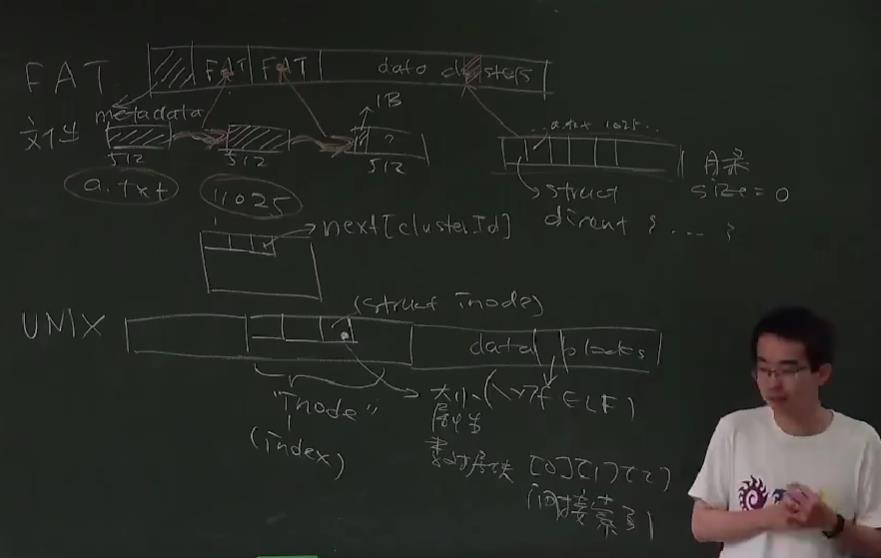 FAT
FAT FAT data clusters
metadata
文件
1B
512 512 512
a.txt 1025
... a.txt 1025 ...
目录
size = 0
struct
dirent { ... }
next[clusterId]
UNIX
(struct inode)
data blocks
"inode"
(index)
大小 (\x7f ELF)
属性
数据块 [0][1][2]
间接索引